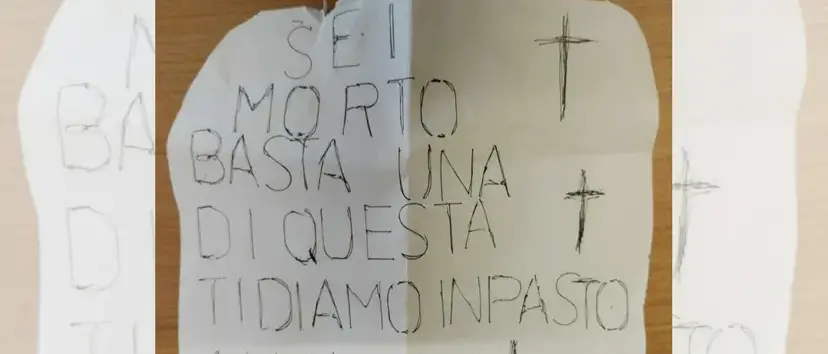 SEI
MORTO
BASTA UNA
DI QUESTA
TI DIAMO INPASTO